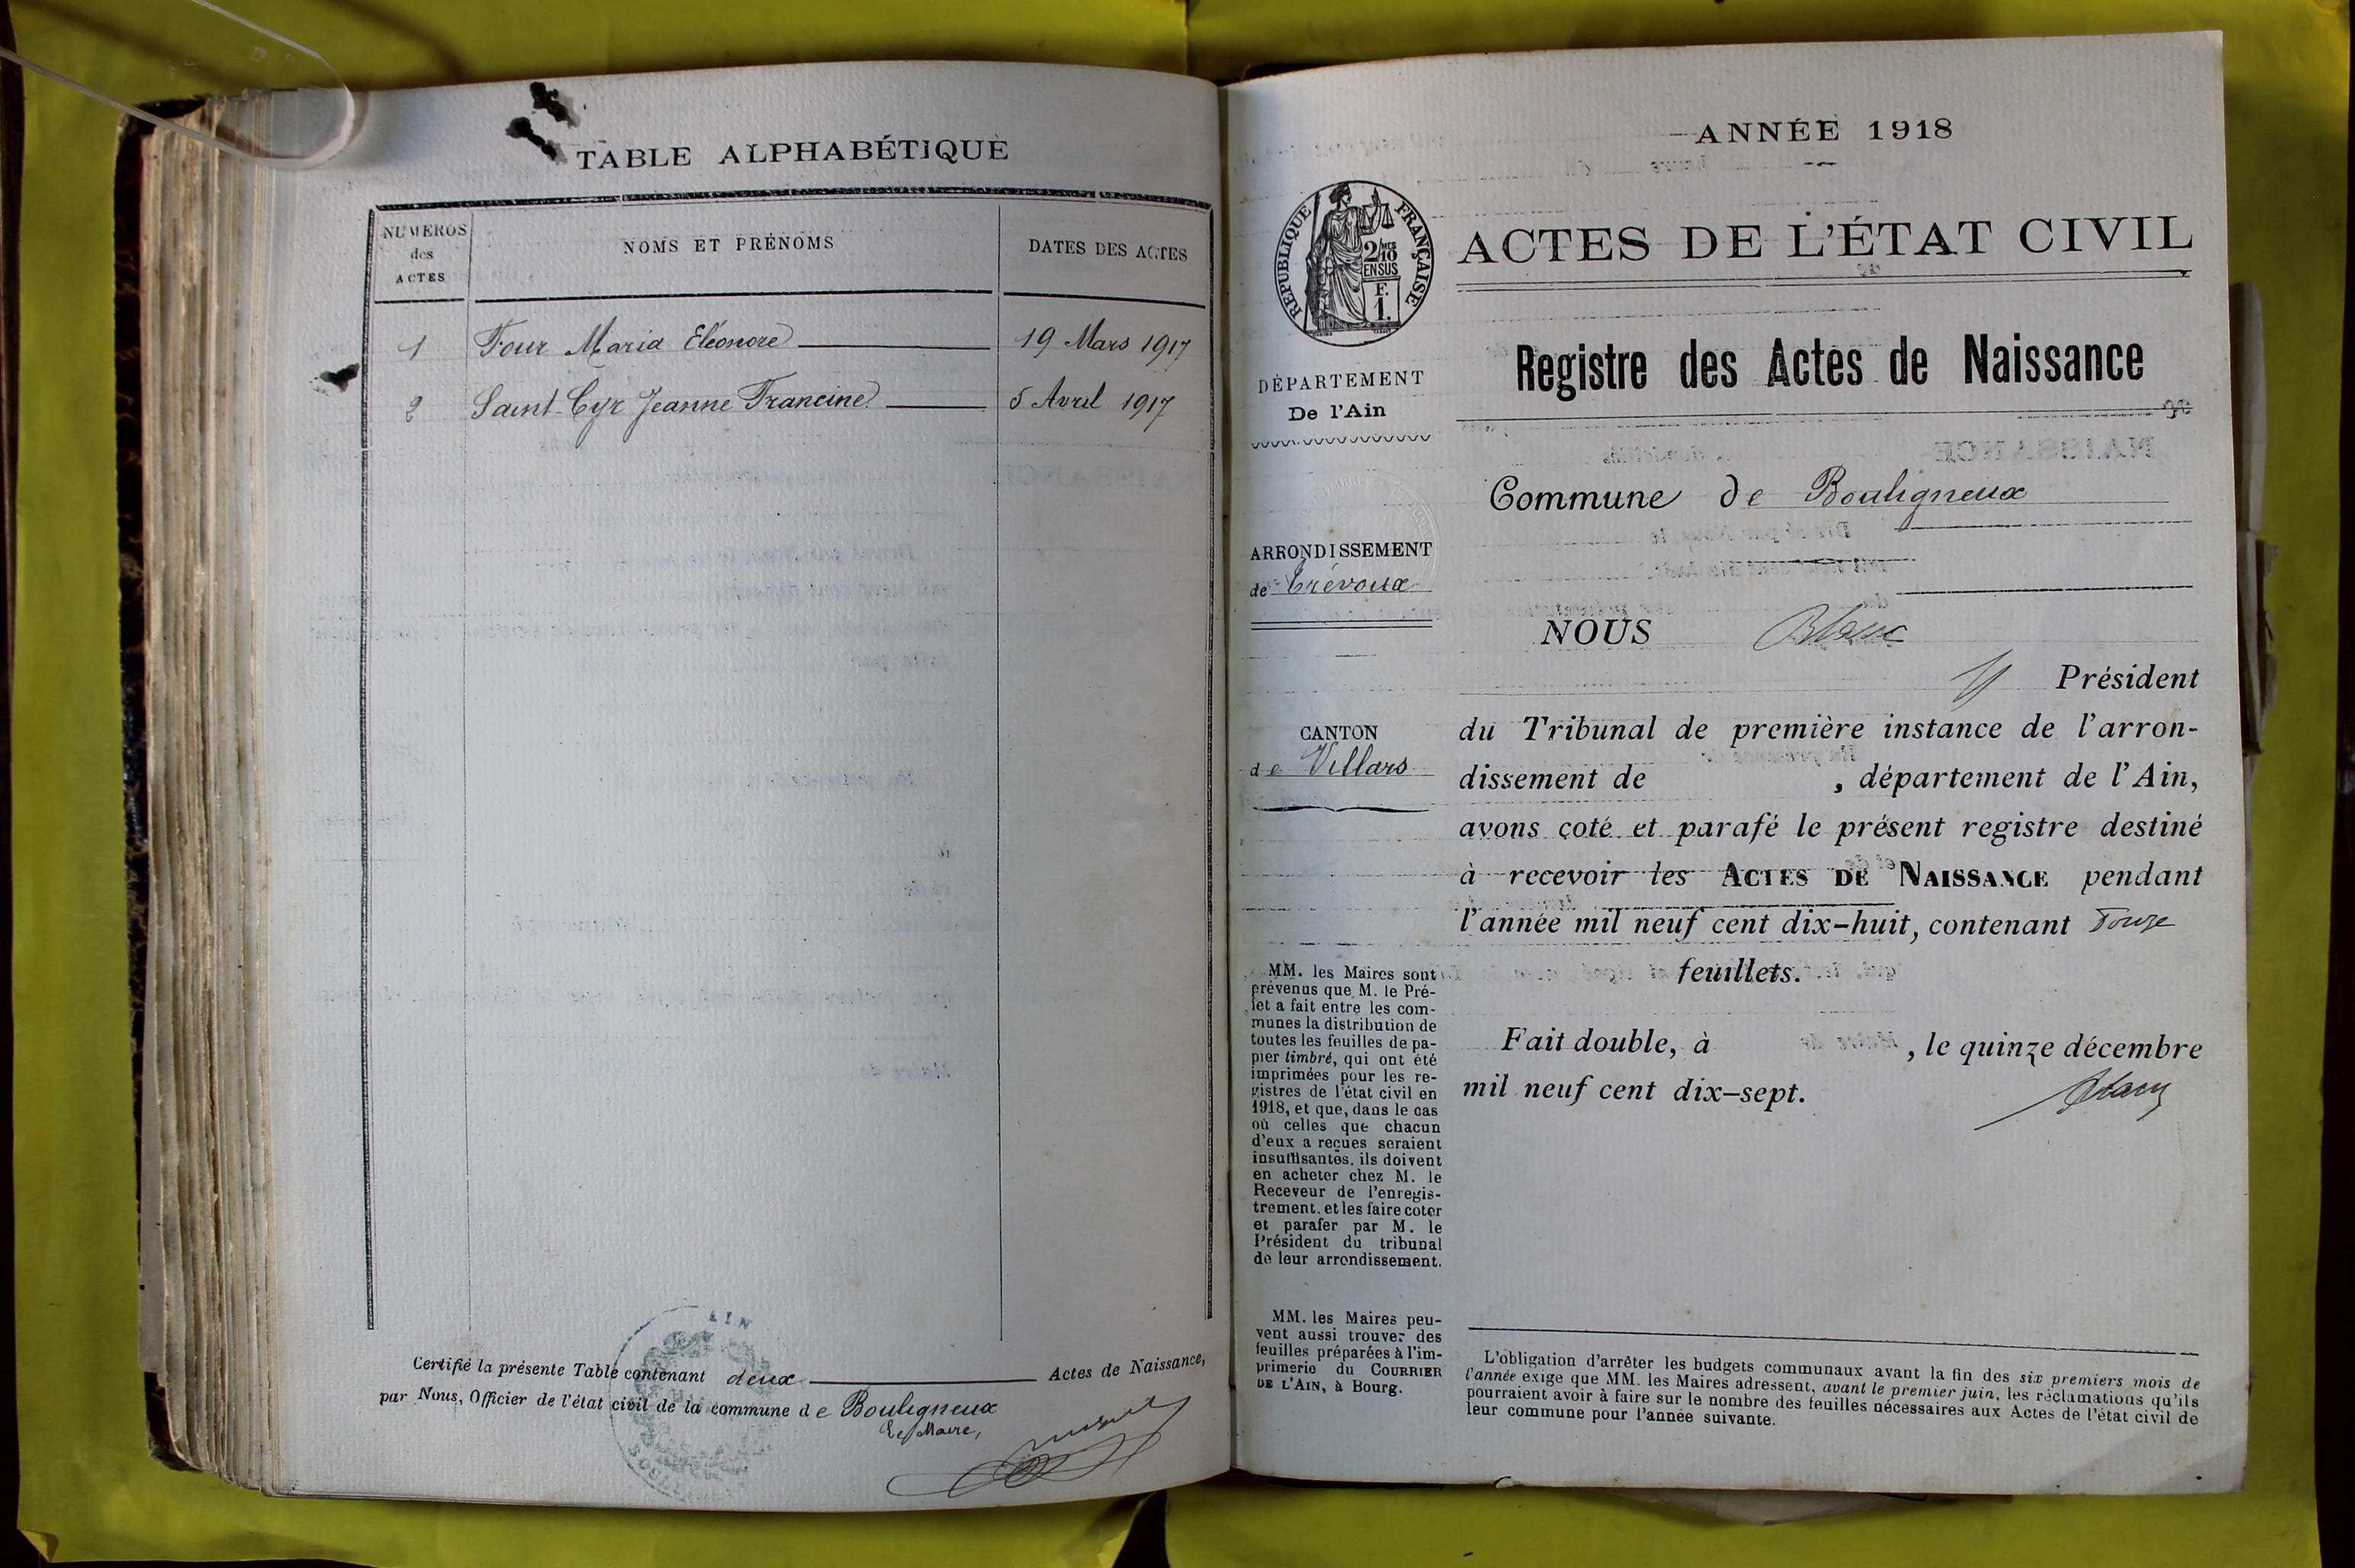 TABLE ALPHABÉTIQUE
NUMÉROS
des
ACTES
NOMS ET PRÉNOMS
DATES DES ACTES
1 Four Maria Eléonore 19 Mars 1917
2 Saint-Cyr Jeanne Francine 5 Avril 1917
AIN
Certifié la présente Table contenant deux Actes de Naissance,
par Nous, Officier de l'état civil de la commune de Bouligneux
Le Maire,
ANNÉE 1918
RÉPUBLIQUE FRANÇAISE
2/10 MES
EN SUS
F.
1.
ACTES DE L'ÉTAT CIVIL
Registre des Actes de Naissance
DÉPARTEMENT
De l'Ain
Commune de Bouligneux
ARRONDISSEMENT
de Trévoux
CANTON
de Villars
NOUS Blanc
Président
du Tribunal de première instance de l'arron-
dissement de , département de l'Ain,
avons coté et parafé le présent registre destiné
à recevoir les ACTES DE NAISSANCE pendant
l'année mil neuf cent dix-huit, contenant Douze
feuillets.
Fait double, à , le quinze décembre
mil neuf cent dix-sept.
MM. les Maires sont
prévenus que M. le Pré-
fet a fait entre les com-
munes la distribution de
toutes les feuilles de pa-
pier timbré, qui ont été
imprimées pour les re-
gistres de l'état civil en
1918, et que, dans le cas
où celles que chacun
d'eux a reçues seraient
insuffisantes, ils doivent
en acheter chez M. le
Receveur de l'enregis-
trement, et les faire coter
et parafer par M. le
Président du tribunal
de leur arrondissement.
MM. les Maires peu-
vent aussi trouver des
feuilles préparées à l'im-
primerie du COURRIER
DE L'AIN, à Bourg.
L'obligation d'arrêter les budgets communaux avant la fin des six premiers mois de
l'année exige que MM. les Maires adressent, avant le premier juin, les réclamations qu'ils
pourraient avoir à faire sur le nombre des feuilles nécessaires aux Actes de l'état civil de
leur commune pour l'année suivante.